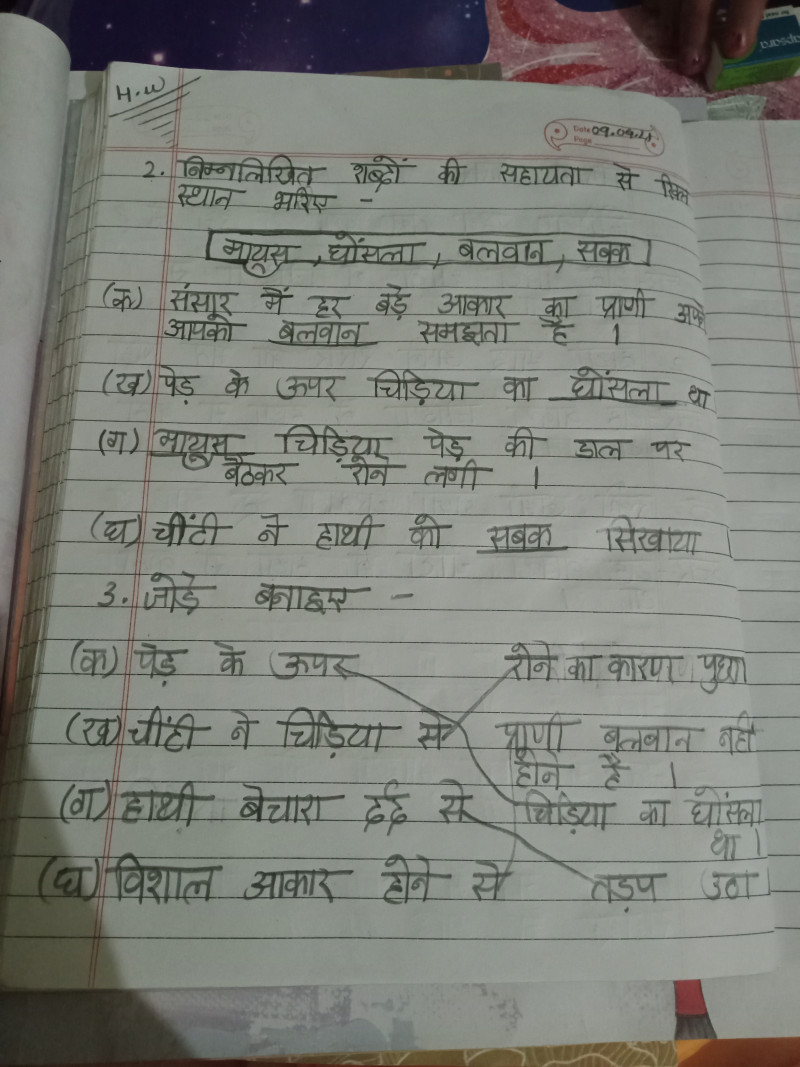 H.W
Date 09.04.21
Page
2. निम्नलिखित शब्दों की सहायता से रिक्त
स्थान भरिए -
मायूस, घोंसला, बलवान, सबक
(क) संसार में हर बड़े आकार का प्राणी अपने
आपको बलवान समझता है ।
(ख) पेड़ के ऊपर चिड़िया का घोंसला था
(ग) मायूस चिड़िया पेड़ की डाल पर
बैठकर रोने लगी ।
(घ) चींटी ने हाथी को सबक सिखाया ।
3. जोड़े बनाइए -
(क) पेड़ के ऊपर रोने का कारण पुछा
(ख) चींटी ने चिड़िया से प्राणी बलवान नही
होने है ।
(ग) हाथी बेचारा दर्द से चिड़िया का घोंसला
था ।
(घ) विशाल आकार होने से तड़प उठा ।